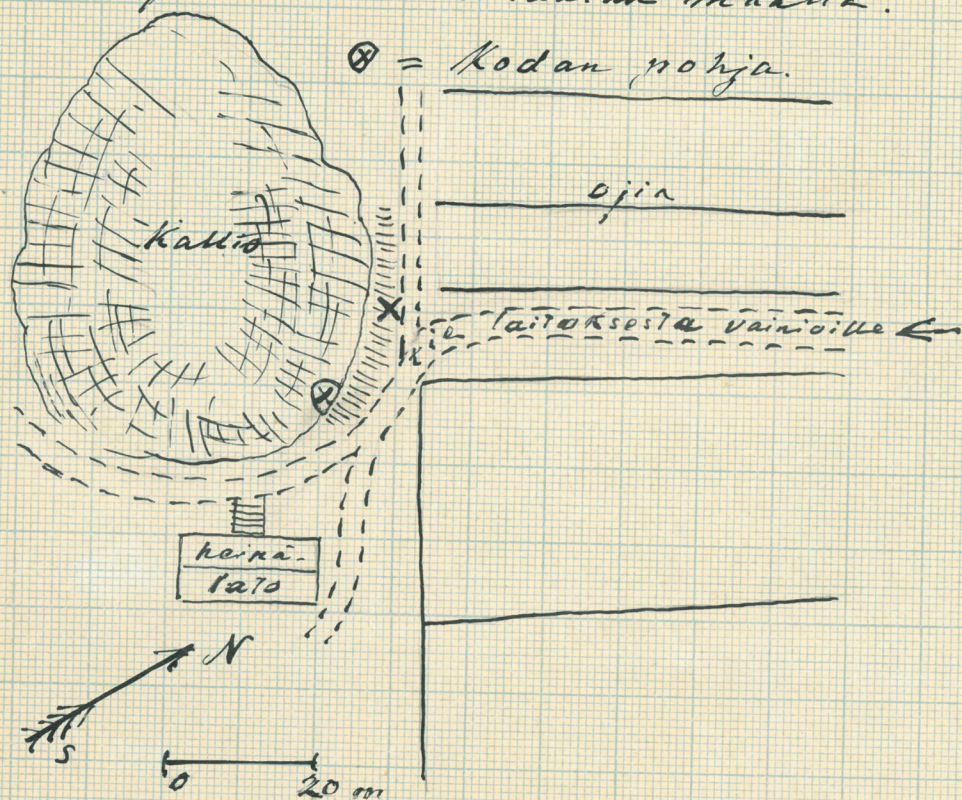 = Kodan pohja.
ojia
Kallio
tie laitoksesta vainioille
heinä-
lato
N
S
0 20 m